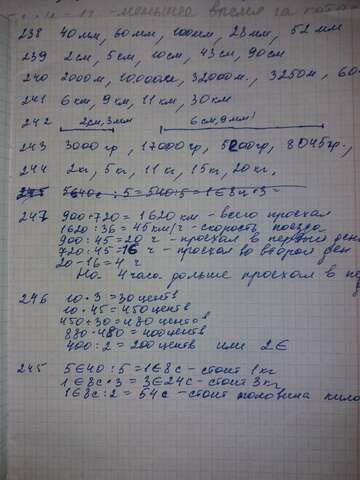 -меньшее время за
238 40мм, 60мм, 100мм, 23мм, 52мм
239 2см, 5см, 10см, 43см, 90см
240 2000м, 10000м, 32000м, 3250м, 60
241 6км, 9км, 11км, 30км
242 2см,3мм 6см,9мм
243 3000гр, 17000гр, 5200гр, 8045гр.,
244 2кг, 5кг, 11кг, 15кг, 20кг,
245 5€40с:5=540:5=1€8ц·3=
247 900+720=1620км - всего проехал
1620:36=45км/ч - скорость поезда
900:45=20 ч - проехал в первый ден
720:45=16 ч - проехал во второй ден
20-16=4 ч
На 4 часа дольше проехал в п
246 10·3=30центв
10·45=450центв
450+30=480центов
880-480=400центв
400:2=200центв или 2€
245 5€40:5=1€8с - стоит 1кг
1€8с·3=3€24с - стоит 3кг
1€8с:2=54с - стоит половина кило